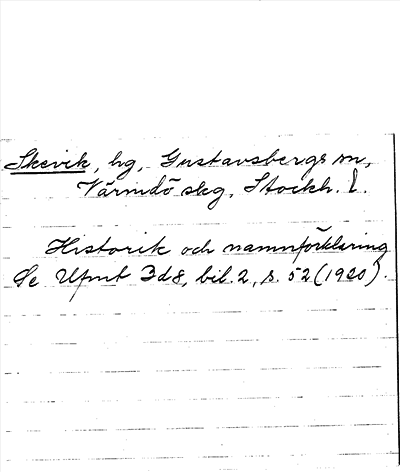 Skevik, hg, Gustavsbergs sn,
Värmdö skg, Stockh. l.
Historik och namnförklaring
Se Ufmt Bd 8, bil. 2, s. 52 (1920).